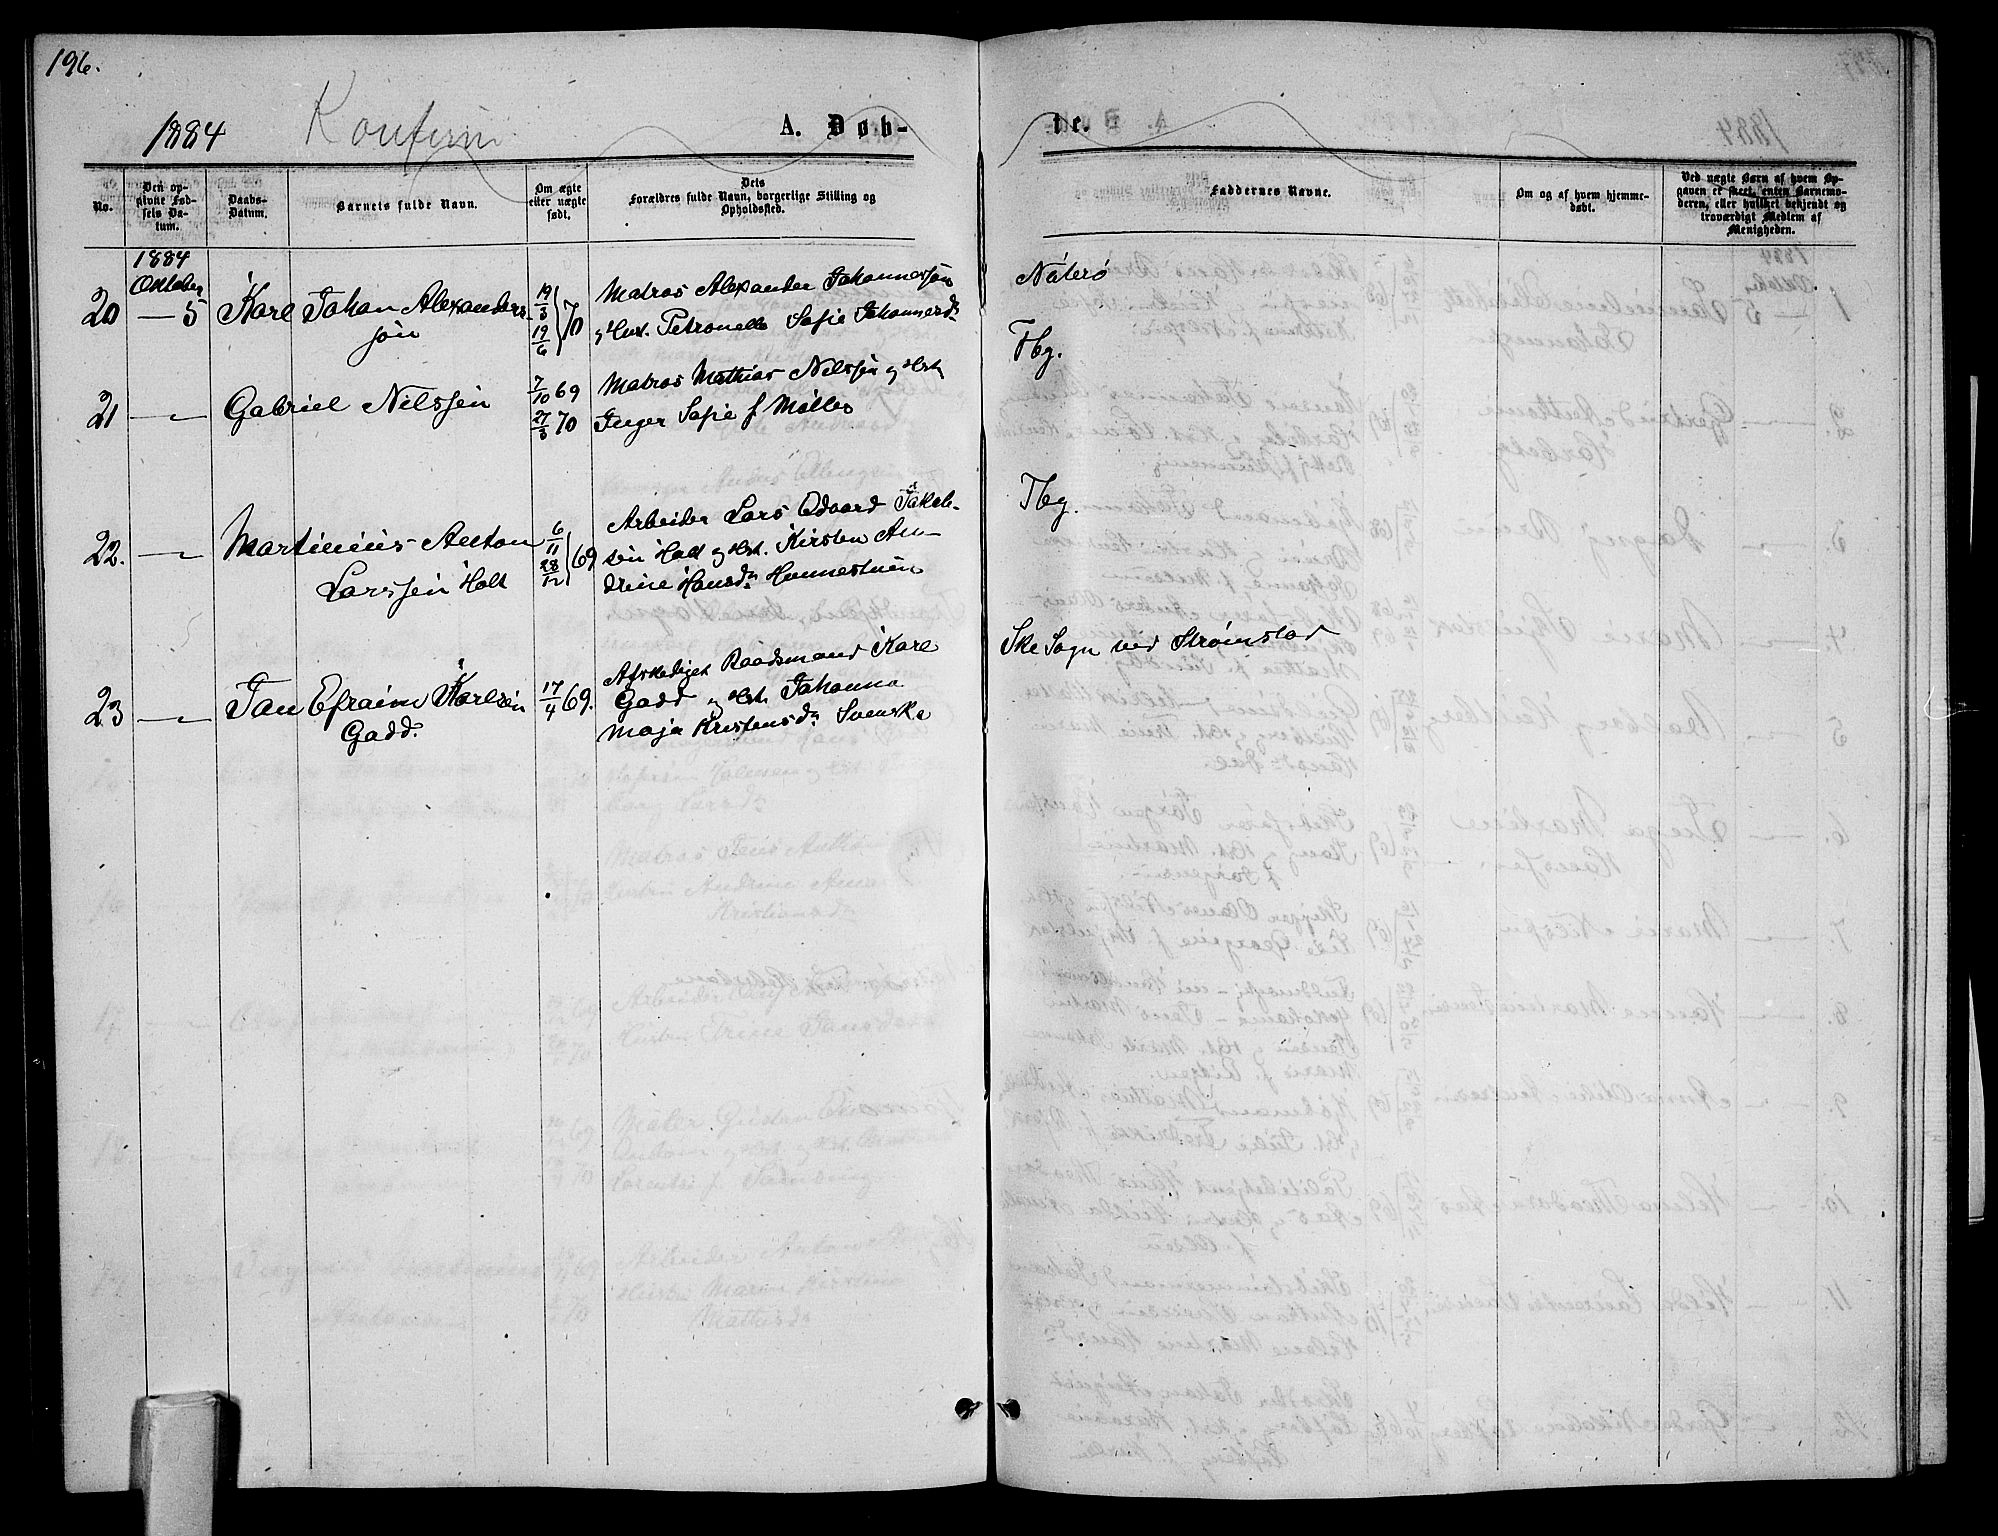 196.
1884
Konfirm
A. Døb-
te.
No.
Den op-
givne Fød-
sels Da-
tum.
Daabs-
Datum.
Barnets fulde Navn.
Om ægte
eller uægte
født.
Dets
Forældres fulde Navn, borgerlige Stilling og
Opholdssted.
Faddernes Navne.
Om og af hvem hjemme-
døbt.
Ved uægte Børn af hvem Op-
gaven er skeet, enten Barnemo-
deren, eller hvilket bekjendt og
troværdigt Medlem af
Menigheden.
1884
Oktober
20 — 5 Karl Johan Alexanders-
søn
19/3 19/6 70
Matros Alexander Johannessøn
og Hust. Petronelle Sofie Johannesd.
Nøterø
21 — Gabriel Nilssen
7/10 69
27/3 70
Matros Mathias Nilssen og Hst.
Inger Sofie f. Møller
Tbg.
22. — Martinius Anton
Larssen Holt
6/11 28/12 69
Arbeider Lars Edvard Jakob-
sen Holt og Hst. Kirsten An-
drine Hansd. Hunnestuen
Tbg.
23 — Jan Efraim Karlsen
Gadd.
17/4 69.
Afskediget Baadsmand Karl
Gadd og Hst. Johanna
Maja Kristensd. Svenske
Ske Sogn ved Strømstad